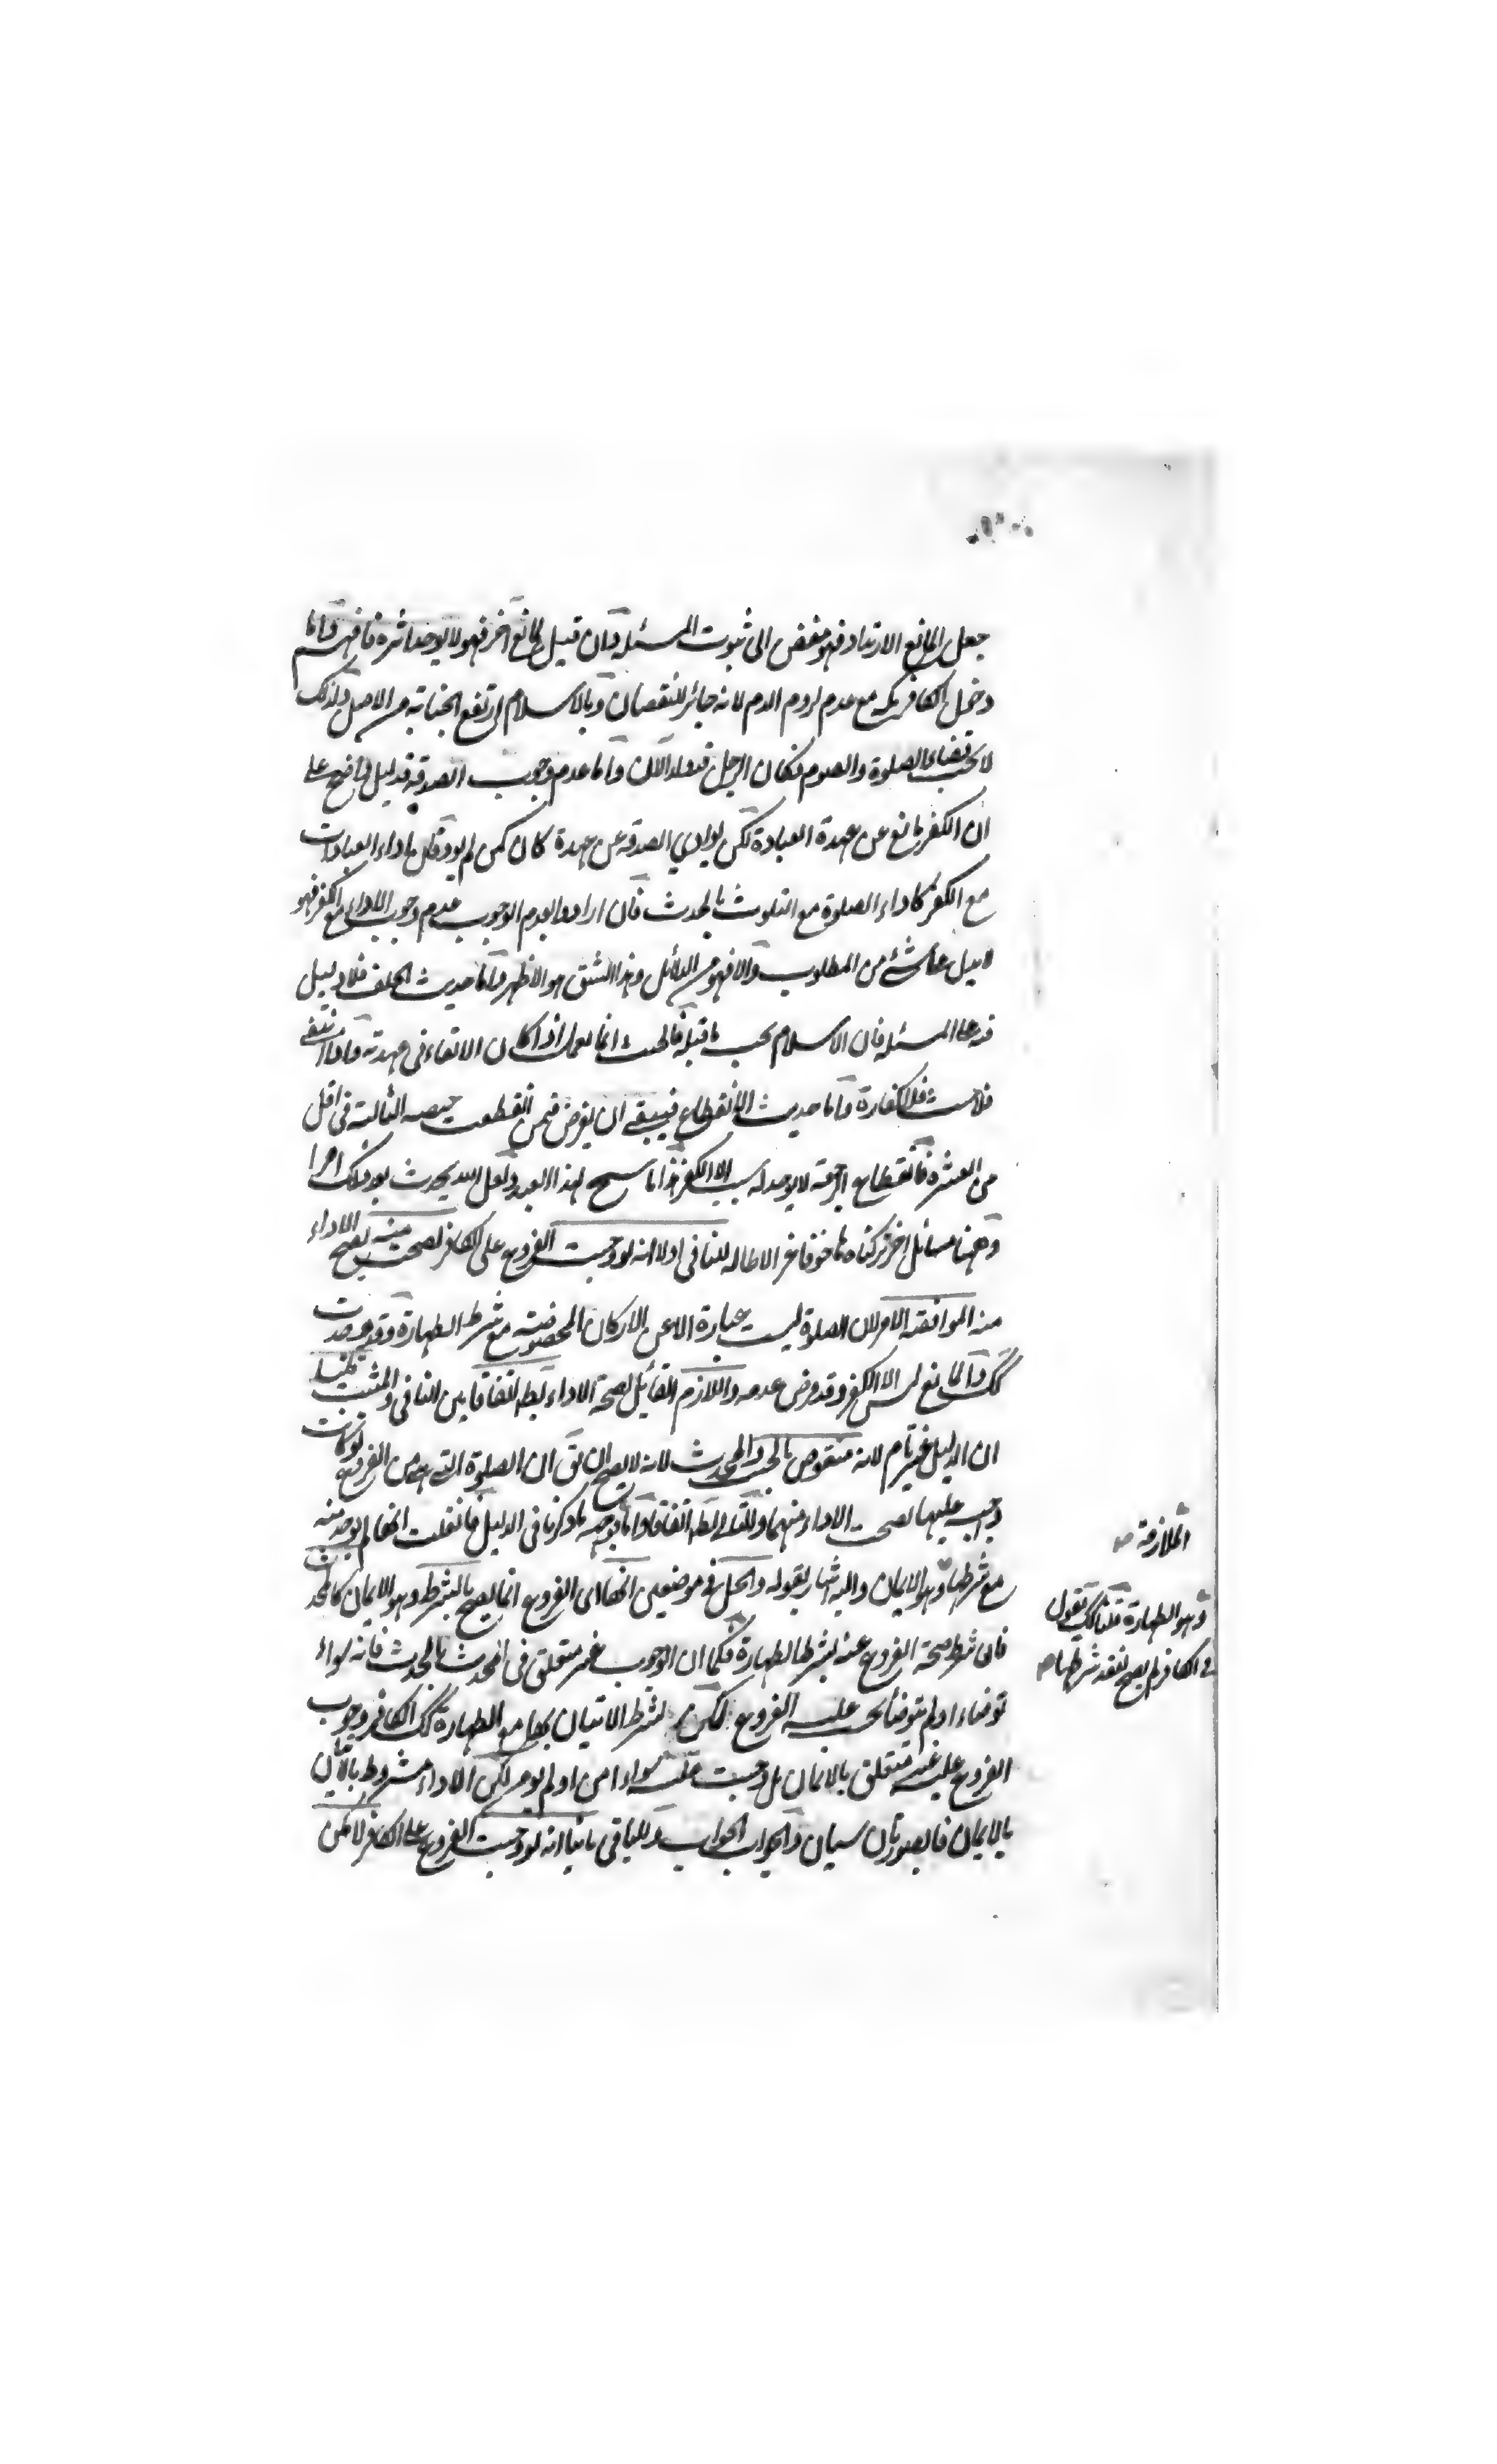 جعل المانع الارتداد فهو مفض الى ثبوت المسئلة وان قيل لمانع اخر فهو لا يوجد اثره فافهم واما
دخول الكافر مكة مع عدم لزوم الدم لانه جائز للنقصان وبالاسلام ارتفع الجناية من الاصل ولذلك
لا يجب قضاء الصلوة والصوم فكان الرجل قد ولد الان واما عدم وجوب الصدقة فدليل واضح على
ان الكفر مانع عن عهدة العبادة لكن لو ادى الصدقة عن عهدة كان كمن لم يؤد وقل باداء العبادات
مع الكفر كاداء الصلوة مع التلوث بالحدث فان ارادوا بعدم الوجوب عدم وجوب الاداء مع الكفر فهو
لا يبل على شئ من المطلوب والا فهو من الدلائل وهذا الشق هو الاظهر واما حديث الحلف فلا دليل
فيه على المسئلة فان الاسلام يجب ما قبله فالحنث انما يعمل اذا كان الاتقاء في عهدته واذا انتفى
فلا حنث فلا كفارة واما حديث الانقطاع فينبغي ان يفرض فيمن انقطعت حيضه الثالثة في اقل
من العشرة فانقطاع الرجعة لا يوجد له سبب الا الكفر هذا ما سنح لهذا العبد ولعل الله يحدث بعد ذلك امرا
وههنا مسائل اخر تركناها خوفا عن الاطالة للنافي اولا انه لو وجبت الفروع على الكافر لصحت منه يصح الاداء
منه لموافقة الامر لان الصلوة ليست عبارة الا عن الاركان المخصوصة مع شرط الطهارة وقد وجدت
كك والمانع ليس الا الكفر وقد فرض عدمه واللازم القائل لصحة الاداء بط اتفاقا بين النافي والمثبت قلنا
ان الدليل غير تام لانه منقوض بالجنب والمحدث لانه لا يصح ان يق ان الصلوة التي هي من الفروع لو كانت
واجبة عليها لصحت الاداء منهما والتالي بط اتفاقا واما بوجه ما ذكرنا في الدليل فان قلت انها لم يوجد منه
مع شرطها وهو الايمان واليه اشار بقوله والحل في موضعين انها اى الفروع انما يصح بالشرط وهو الايمان كالمحدث
فان شرط صحة الفروع عنه بشرط الطهارة فكما ان الوجوب غير متعلق في المحدث بالحدث فانه سواء
توضاء او لم يتوضأ يجب عليه الفروع لكن بشرط الاتيان بها مع الطهارة كك الكافر وجوب
الفروع عليه غير متعلق بالايمان بل وجبت عليه سواء امن او لم يؤمن لكن الاداء مشروط بالاتيان
بالايمان فالصورتان سيان والجواب الجواب وللنافي ثانيا انه لو وجبت الفروع على الكافر لامكن
الملازمة صح
وهو الطهارة قلنا كك نقول
في الكافر لم يصح لفقد شرطها صح